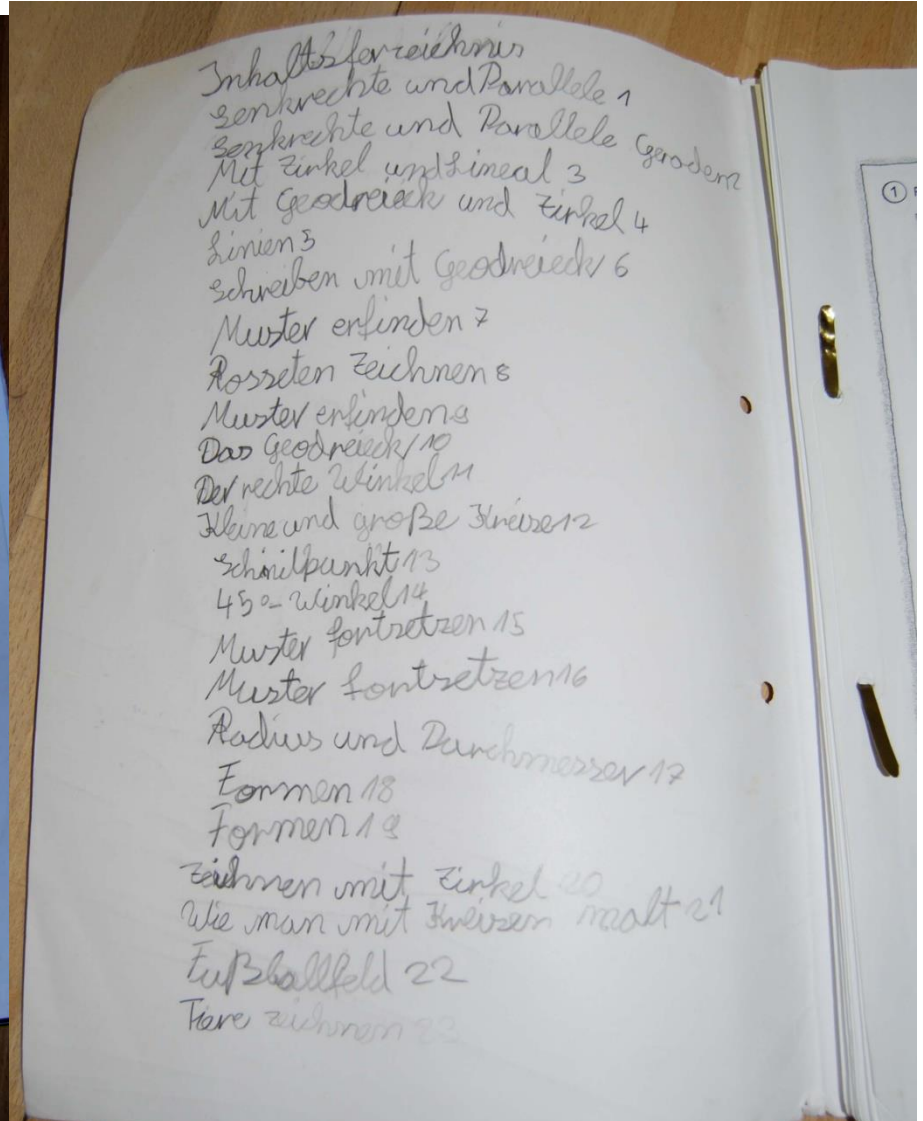 Inhaltsferzeichnis
Senkrechte und Parallele 1
Senkrechte und Parallele Geraden 2
Mit Zirkel und Lineal 3
Mit Geodreieck und Zirkel 4
Linien 5
Schreiben mit Geodreieck 6
Muster erfinden 7
Rosseten Zeichnen 8
Muster erfinden 9
Das Geodreieck 10
Der rechte Winkel 11
Kleine und große Kreise 12
Schnittpunkt 13
45°-Winkel 14
Muster fortsetzen 15
Muster fortsetzen 16
Radius und Durchmesser 17
Formen 18
Formen 19
Zeichnen mit Zirkel 20
Wie man mit Kreisen malt 21
Fußballfeld 22
Tiere zeichnen 23
1